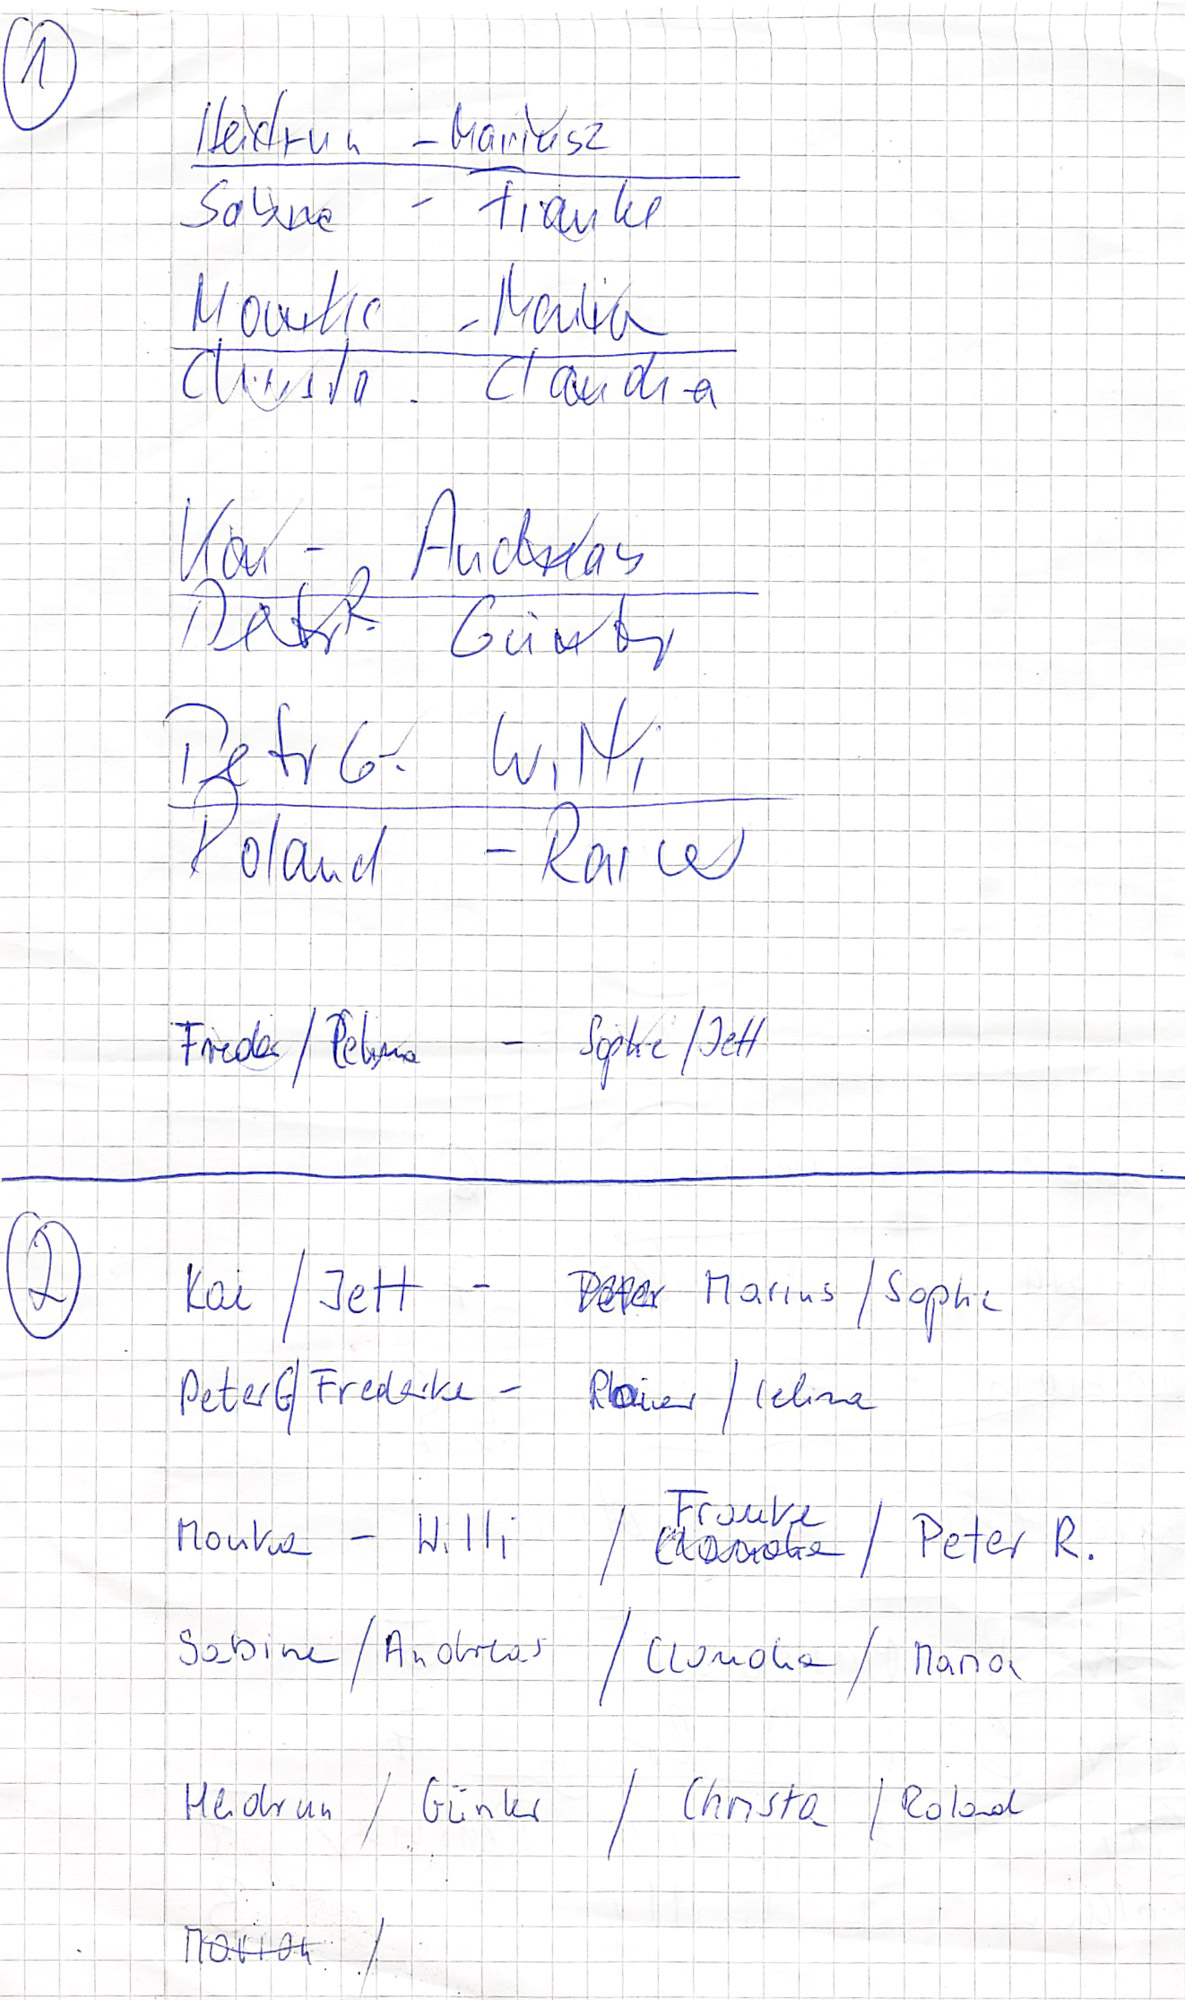 1
Heidrun - Mariusz
Sabine - Frauke
Monika - Maria
Christa - Claudia
Kai - Andreas
Peter R. Günter
Peter G. - Willi
Roland - Rainer
Frieda / Celina - Sophie / Jett
2
Kai / Jett - Peter Marius / Sophie
Peter G / Frederike - Rainer / Celina
Frauke
Monika - Willi / Claudia / Peter R.
Sabine / Andreas / Claudia / Maria
Heidrun / Günter / Christa / Roland
Marion /